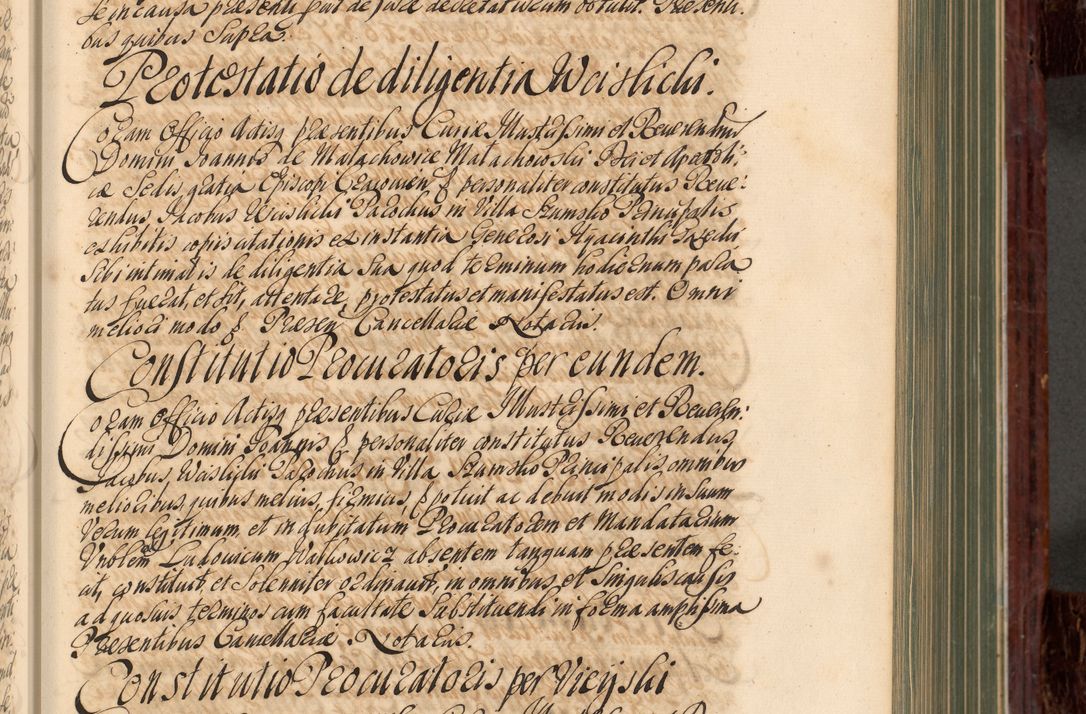 se in causa præsenti par de jure decretatur cum obtulit. Præsenti:
bus quibus supra.
Protestatio de diligentia Wcislicki.
Coram Officio Actisq præsentibus Curiæ Illustrissimi et Reverendissimi
Domini Joannis de Małachowice Małachowski Dei et Apostoli:
cæ Sedis gratia Episcopi Cracovien § personaliter constitutus Reve:
rendus Jacobus Wcislicki Parochus in Villa Szumsko Principalis
exhibitis copiis citationis ex instantia Generosi Hyacinthi
sibi intimatis de diligentia sua quod terminum hodiernum para
tus fuerat, et sit, attentare, protestatus et manifestatus est. Omni
meliori modo § Præsen Cancellariæ Notariis.
Constitutio Procuratoris per eundem.
Coram Officio Actisq præsentibus Curiæ Illustrissimi et Reveren:
dissimi Domini Joannis § personaliter constitutus Reverendus
Jacobus Wcislicki Parochus in Villa Szumsko Principalis, omnibus
melioribus, quibus melius, firmius, § potuit ac debuit modis in suum
verum legitimum et indubitatum Procuratorem et Mandatarium
Noblem Ludovicum Watkowicz absentem tanquam præsentem fe:
cit, constituit, et solenniter ordinavit, in omnibus et singulis causis
ad quosvis terminos cum facultate substituendi in forma amplissima
Præsentibus Cancellariæ Notariis.
Constitutio Procuratoris per Vicijski